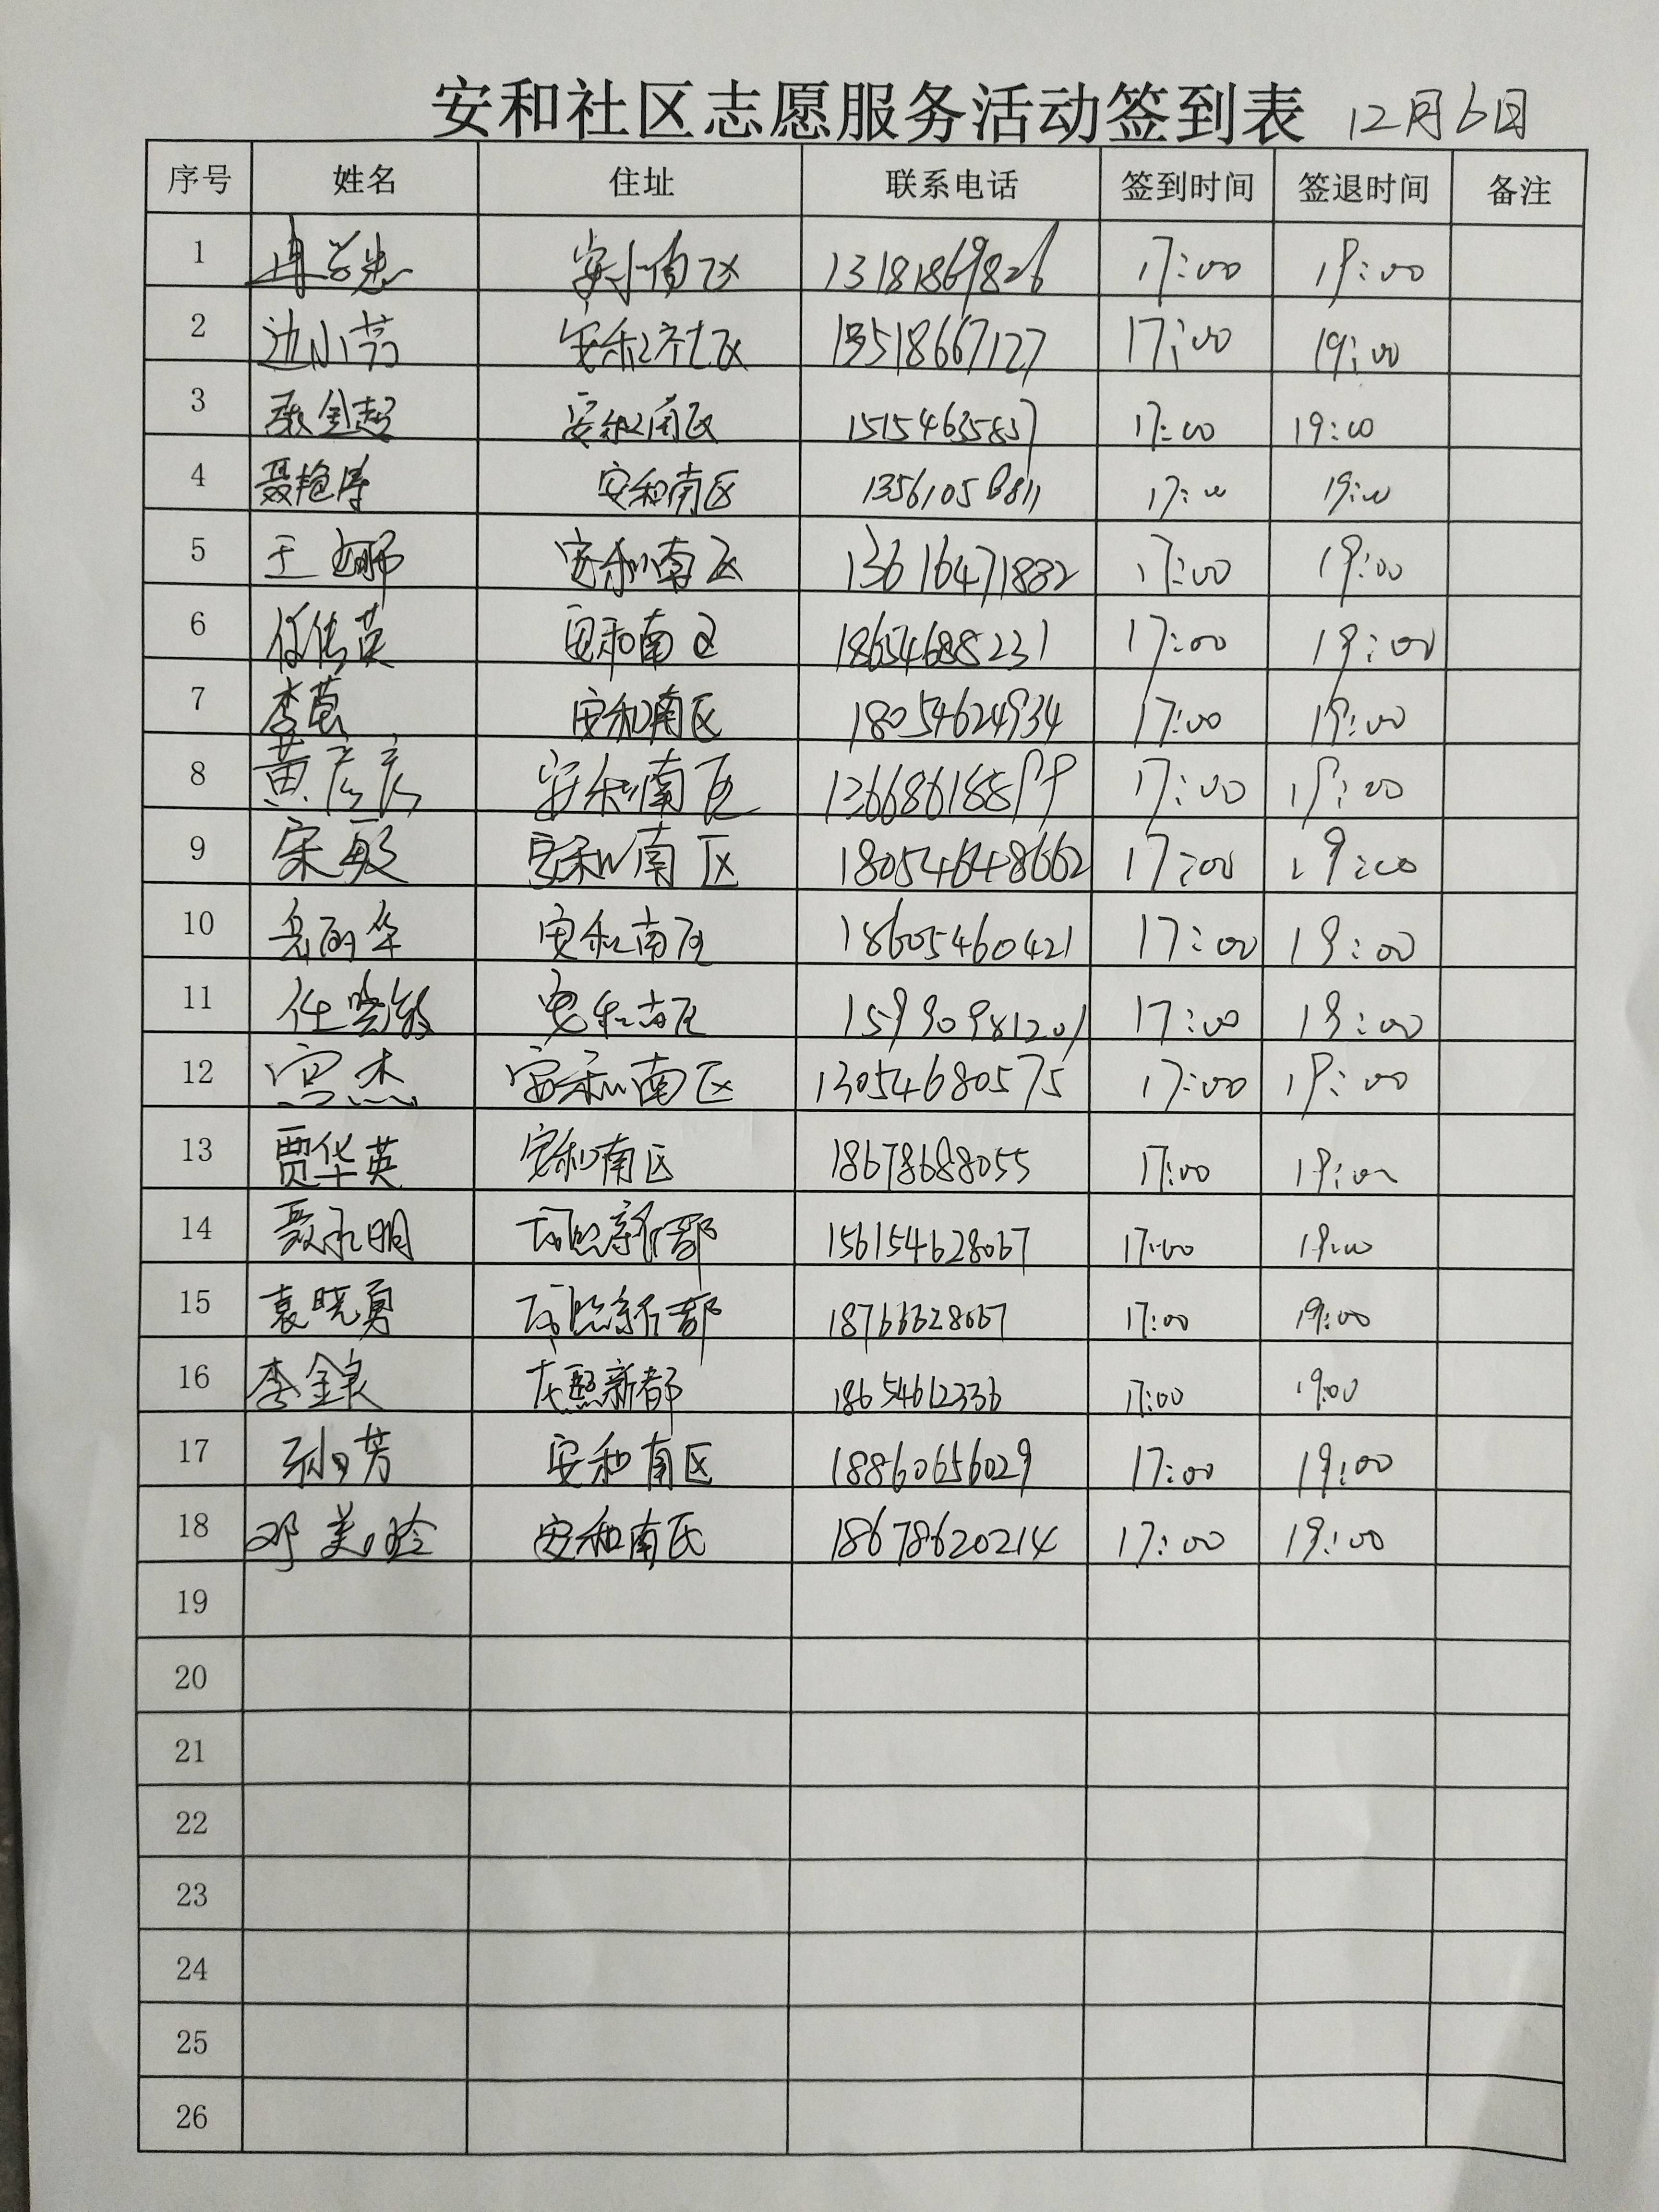 安和社区志愿服务活动签到表 12月6日
序号 姓名 住址 联系电话 签到时间 签退时间 备注
1 13181869826 17:00 19:00
2 边小芳 安和社区 17:00 19:00
3 张金超 安和南区 17:00 19:00
4 聂艳涛 安和南区 17:00 19:00
5 王娜 安和南区 13616471882 17:00 19:00
6 任传英 安和南区 18654688231 17:00 19:00
7 李莺 安和南区 18054624934 17:00 19:00
8 黄彦彦 安和南区 13668618899 17:00 19:00
9 宋敏 安和南区 18054648662 17:00 19:00
10 岳丽华 安和南区 18605460421 17:00 19:00
11 任晓敏 安和南区 15990981201 17:00 19:00
12 宫杰 安和南区 13054680575 17:00 19:00
13 贾华英 安和南区 18678688055 17:00 19:00
14 聂永明 新都 156154628067 17:00 19:00
15 袁晓勇 新都 18766628667 17:00 19:00
16 李金良 新都 18654612336 17:00 19:00
17 芳 安和南区 18860656029 17:00 19:00
18 邓美玲 安和南区 18678620214 17:00 19:00
19
20
21
22
23
24
25
26